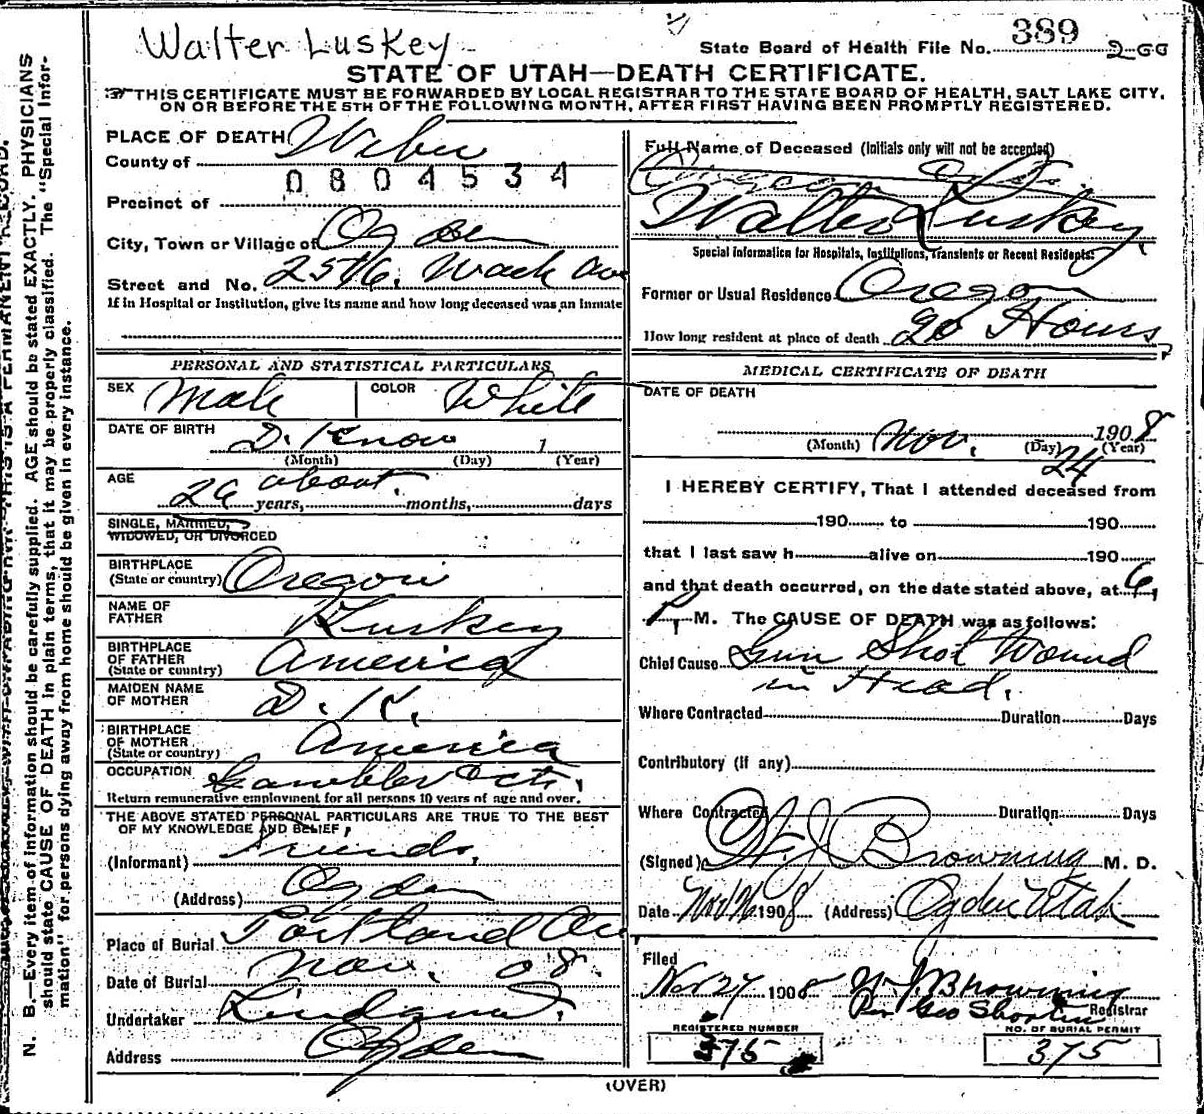 Walter Luskey
State Board of Health File No. 389
STATE OF UTAH—DEATH CERTIFICATE.
THIS CERTIFICATE MUST BE FORWARDED BY LOCAL REGISTRAR TO THE STATE BOARD OF HEALTH, SALT LAKE CITY,
ON OR BEFORE THE 5TH OF THE FOLLOWING MONTH, AFTER FIRST HAVING BEEN PROMPTLY REGISTERED.
N. B.—Every item of information should be carefully supplied. AGE should be stated EXACTLY. PHYSICIANS
should state CAUSE OF DEATH in plain terms, that it may be properly classified. The "Special Infor-
mation" for persons dying away from home should be given in every instance.
PLACE OF DEATH
County of Weber
0804534
Precinct of
City, Town or Village of Ogden
Street and No. 2576
If in Hospital or Institution, give its name and how long deceased was an inmate
PERSONAL AND STATISTICAL PARTICULARS
SEX Male COLOR White
DATE OF BIRTH D. Know 1
(Month) (Day) (Year)
AGE about
26 years, months, days
SINGLE, MARRIED,
WIDOWED, OR DIVORCED
BIRTHPLACE
(State or country) Oregon
NAME OF
FATHER Luskey
BIRTHPLACE
OF FATHER
(State or country) America
MAIDEN NAME
OF MOTHER D. K.
BIRTHPLACE
OF MOTHER
(State or country) America
OCCUPATION Gambler etc.
Return remunerative employment for all persons 10 years of age and over.
THE ABOVE STATED PERSONAL PARTICULARS ARE TRUE TO THE BEST
OF MY KNOWLEDGE AND BELIEF,
(Informant) Friends.
(Address) Ogden
Place of Burial Portland Or
Date of Burial Nov. 08.
Undertaker
Address Ogden
Full Name of Deceased (Initials only will not be accepted)
Walter Luskey.
Special Information for Hospitals, Institutions, Transients or Recent Residents:
Former or Usual Residence Oregon
How long resident at place of death 20 Hours
MEDICAL CERTIFICATE OF DEATH
DATE OF DEATH
Nov. 24 1908
(Month) (Day) (Year)
I HEREBY CERTIFY, That I attended deceased from
190 to 190
that I last saw h alive on 190
and that death occurred, on the date stated above, at 6,
P. M. The CAUSE OF DEATH was as follows:
Chief Cause Gun Shot Wound
in Head.
Where Contracted Duration Days
Contributory (if any)
Where Contracted Duration Days
(Signed) W. J. Browning M. D.
Date Nov 26 1908 (Address) Ogden Utah
Filed
Nov 27 1908 W. J. Browning
Per Geo Registrar
REGISTERED NUMBER
NO. OF BURIAL PERMIT
375
(OVER)